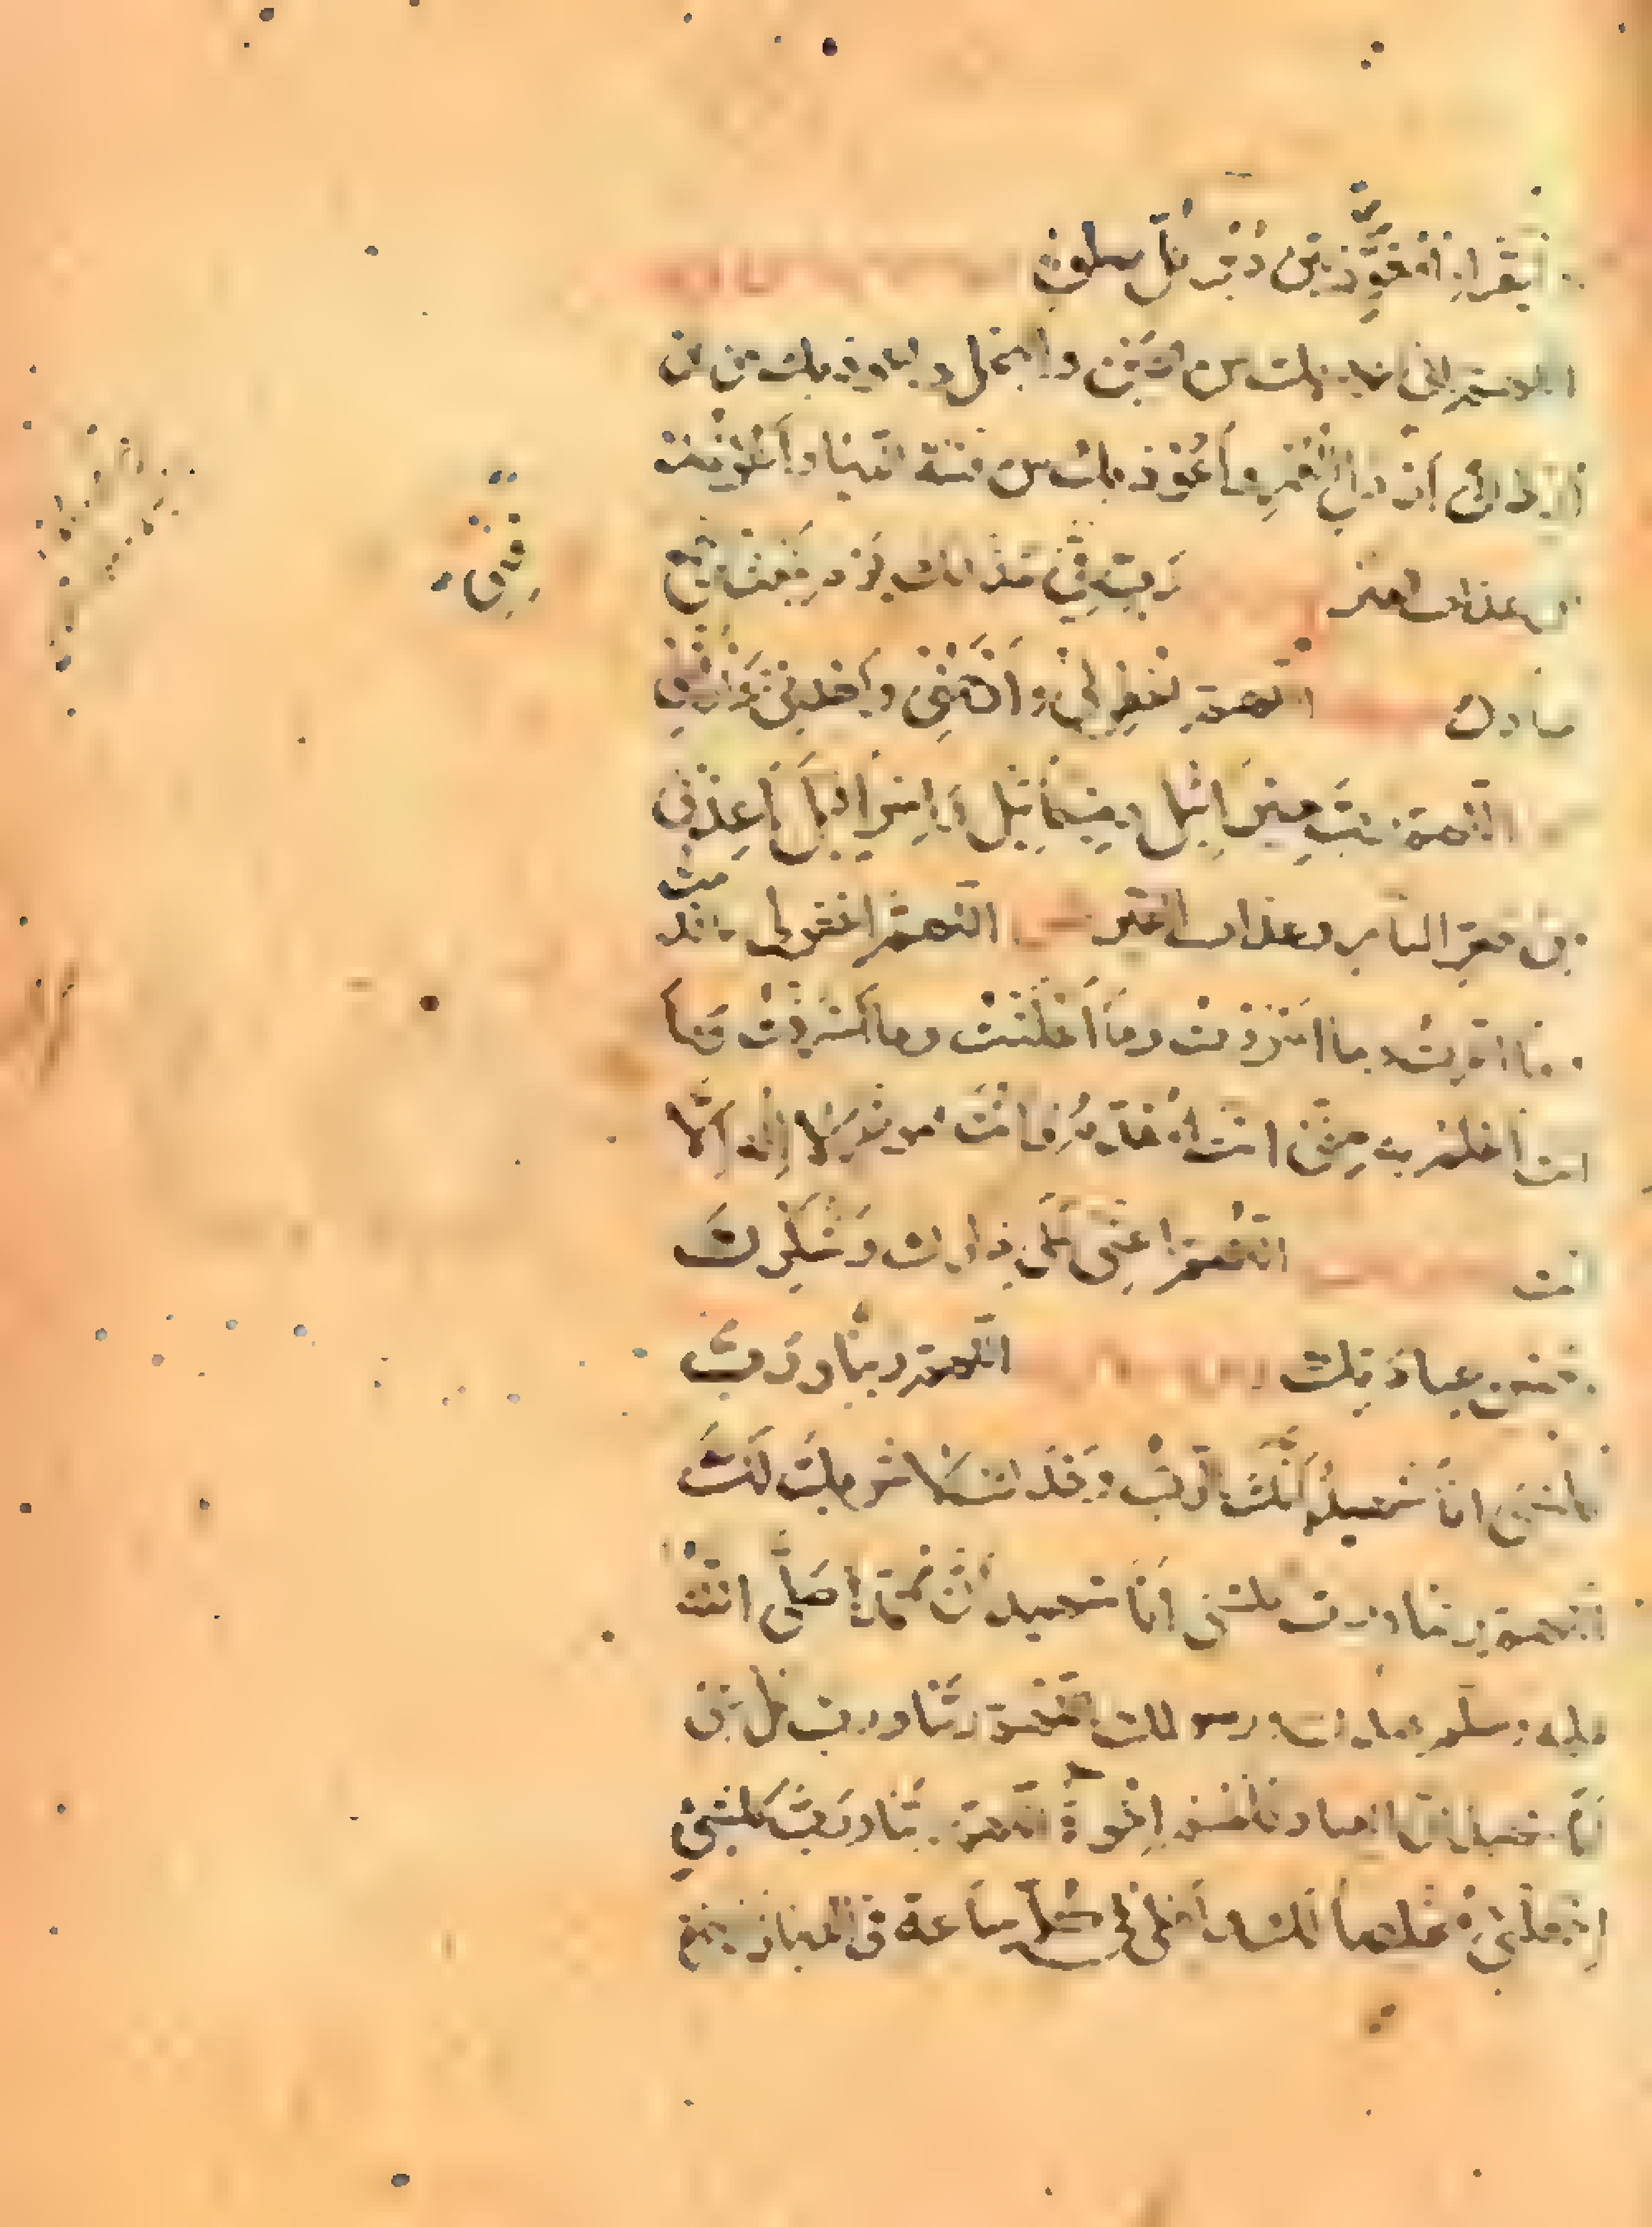 وليقرأ المعوذتين دبر كل صلوة
اللهم إني أعوذ بك من الجبن والبخل وأعوذ بك من أن
أرد إلى أرذل العمر وأعوذ بك من فتنة الدنيا وأعوذ بك
من عذاب القبر رب قني عذابك يوم تبعث
عبادك اللهم اغفر لي وارحمني واهدني وارزقني
اللهم رب جبرائيل وميكائيل وإسرافيل أعذني
من حر النار وعذاب القبر اللهم اغفر لي ما قدمت
وما أخرت وما أسررت وما أعلنت وما أسرفت وما
أنت أعلم به مني أنت المقدم وأنت المؤخر لا إله إلا
أنت اللهم أعني على ذكرك وشكرك
وحسن عبادتك اللهم ربنا ورب
كل شيء أنا شهيد أنك الرب وحدك لا شريك لك
اللهم ربنا ورب كل شيء أنا شهيد أن محمدا صلى الله
عليه وسلم عبدك ورسولك اللهم ربنا ورب كل شيء
أنا شهيد أن العباد كلهم إخوة اللهم ربنا ورب كل شيء
اجعلني مخلصا لك وأهلي في كل ساعة في الدنيا